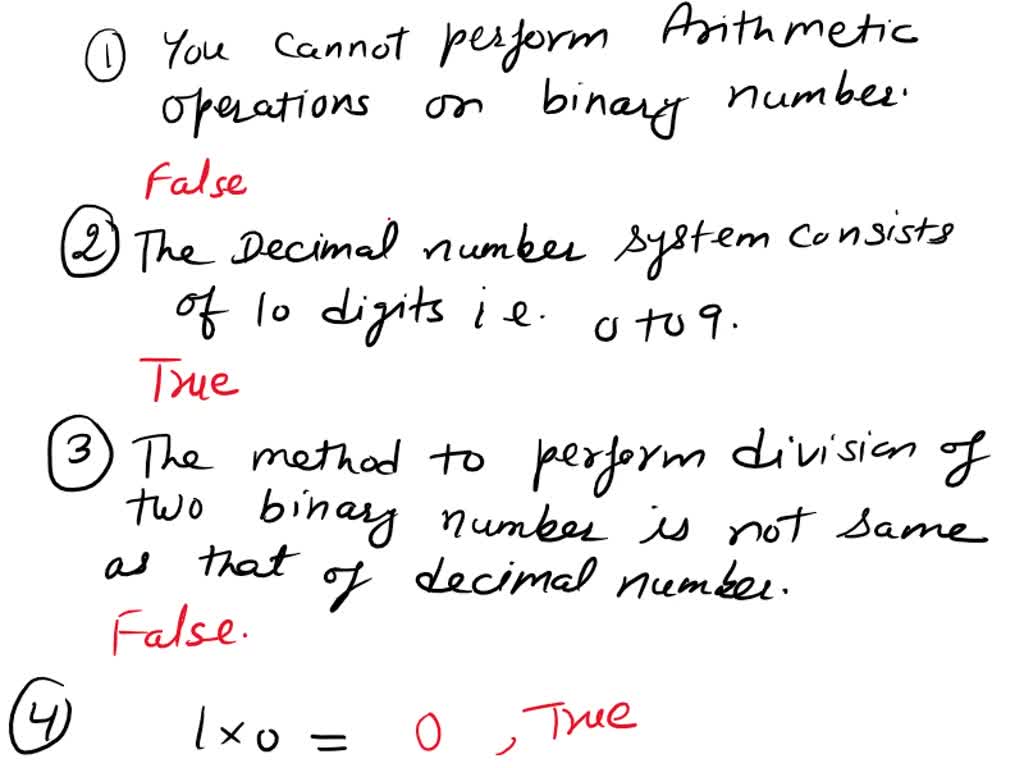 ① You cannot perform Arithmetic
operations on binary number.
False
② The Decimal number system consists
of 10 digits i e. 0 to 9.
True
③ The method to perform division of
two binary number is not same
as that of decimal number.
False.
④ 1 × 0 = 0 , True